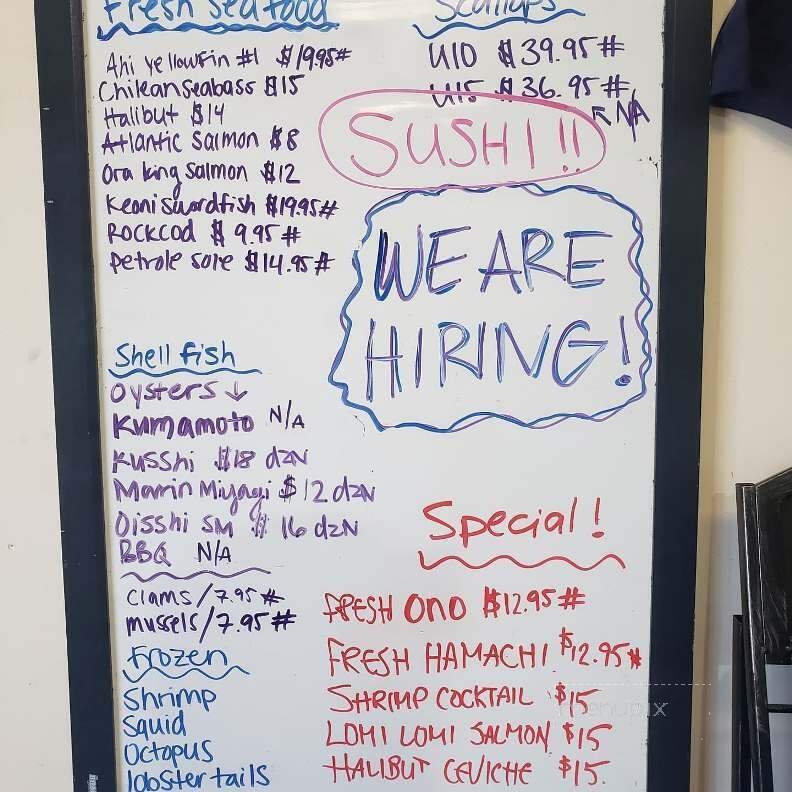 Fresh Seafood
Ahi yellowfin #1 $19.95#
Chilean seabass $15
Halibut $14
Atlantic Salmon $8
Ora king Salmon $12
Keoni swordfish $19.95#
Rockcod $9.95#
Petrole sole $14.95#
Scallops
U10 $39.95#
U15 $36.95#
N/A
SUSHI!!
WE ARE
HIRING!
Shell fish
Oysters ↓
Kumamoto N/A
Kusshi $18 dzN
Marin Miyagi $12 dzN
Oisshi SM $16 dzN
BBQ N/A
Clams/7.95#
mussels/7.95#
Frozen
Shrimp
Squid
Octopus
lobster tails
Special!
FRESH ONO $12.95#
FRESH HAMACHI $12.95#
SHRIMP COCKTAIL $15
LOMI LOMI SALMON $15
HALIBUT CEVICHE $15.
menupix